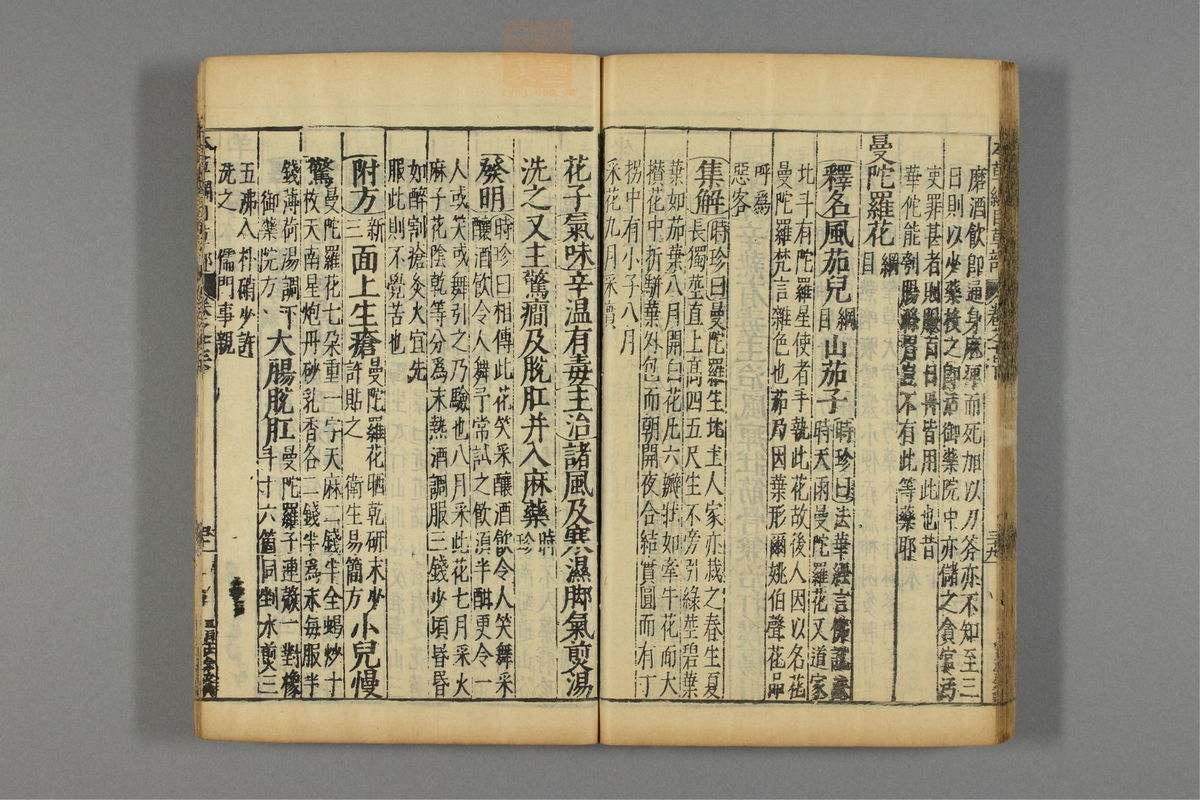 磨酒飲即通身麻痺而死加以刀斧亦不知至三
日則以少藥投之即活御藥院中亦儲之貪官汚
吏罪甚者則服百日骨皆用此也昔
華佗能刳腸滌胃豈不有此等藥耶
曼陀羅花綱目
釋名風茄兒綱目山茄子時珍曰法華經言
時天雨曼陀羅花又道家
北斗有陀羅星使者手執此花故後人因以名花
曼陀羅梵言雜色也茄乃因葉形爾姚伯聲花品
呼爲
惡客
集解時珍曰曼陀羅生北土人家亦栽之春生夏
長獨莖直上高四五尺生不旁引綠莖碧葉
葉如茄葉八月開白花凡六瓣狀如牽牛花而大
攢花中折駢葉外包而朝開夜合結實圓而有丁
拐中有小子八月
采花九月采實
花子氣味辛溫有毒主治諸風及寒濕脚氣煎湯
洗之又主驚癇及脫肛并入麻藥時珍
發明時珍曰相傳此花笑采釀酒飲令人笑舞采
釀酒飲令人舞予常試之飲須半酣更令一
人或笑或舞引之乃驗也八月采此花七月采火
麻子花陰乾等分爲末熱酒調服三錢少頃昏昏
如醉割瘡灸火宜先
服此則不覺苦也
附方新三面上生瘡曼陀羅花晒乾研末少
許貼之 衛生易簡方小兒慢
驚曼陀羅花七朵重一字天麻二錢半全蝎炒十
枚天南星炮丹砂乳香各二錢半爲末每服半
錢薄荷湯調下
御藥院方大腸脫肛曼陀羅子連殼一對橡
斗十六箇同剉水煎三
五沸入朴硝少許
洗之 儒門事親